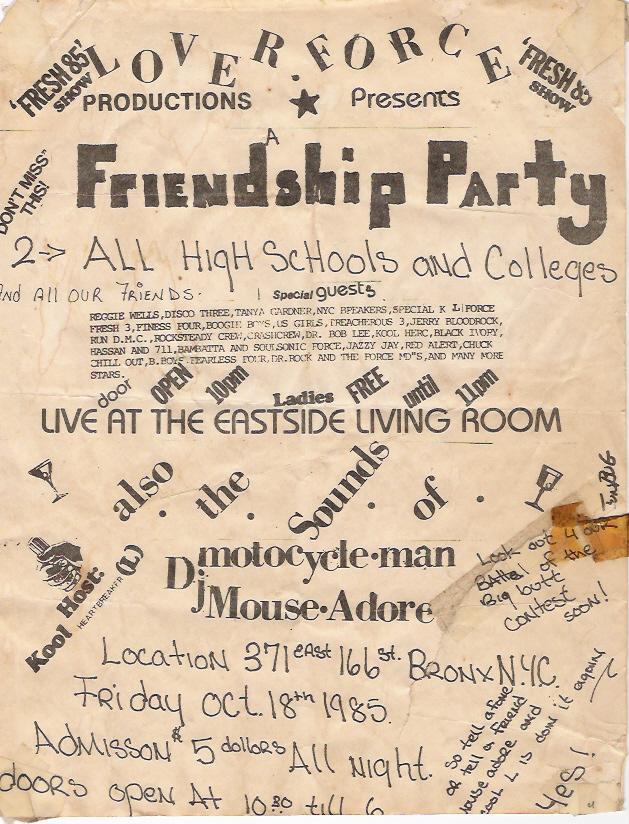 'FRESH 85' SHOW
LOVER.FORCE
'FRESH 85 SHOW
PRODUCTIONS ★ Presents
A
"DON'T MISS THIS!
FriENdship PArty
2-> ALL HigH ScHools and Colleges
AND All OUR FRiENDS.
Special guests.
REGGIE WELLS,DISCO THREE,TANYA GARDNER,NYC BREAKERS,SPECIAL K L FORCE
FRESH 3,FINESS FOUR,BOOGIE BOYS,US GIRLS,TREACHEROUS 3,JERRY BLOODROCK,
RUN D.M.C.,ROCKSTEADY CREW,CRASHCREW,DR. BOB LEE,KOOL HERC,BLACK IVORY,
HASSAN AND 711,BAMBATTA AND SOULSONIC FORCE,JAZZY JAY,RED ALERT,CHUCK
CHILL OUT,B.BOYS FEARLESS FOUR,DR.ROCK AND THE FORCE MD"S,AND MANY MORE
STARS.
door OPEN 10pm Ladies FREE until 11pm
LIVE AT THE EASTSIDE LIVING ROOM
also . the . Sounds . of .
Kool Host: (L)
HEARTBREAKER
Dj motocycle·man
Dj Mouse·Adore
Look out 4 our
Battel of the
Big butt
CONTEST
soon!
Location 371 east 166 st. BRONX N.Y.C.
Friday Oct. 18th 1985.
ADMISSON $ 5 dollors All Night.
doors open At 10 30 till 6
so tell afone
or tell a friend
mouse adore and
cool L is doin it again
Yes!